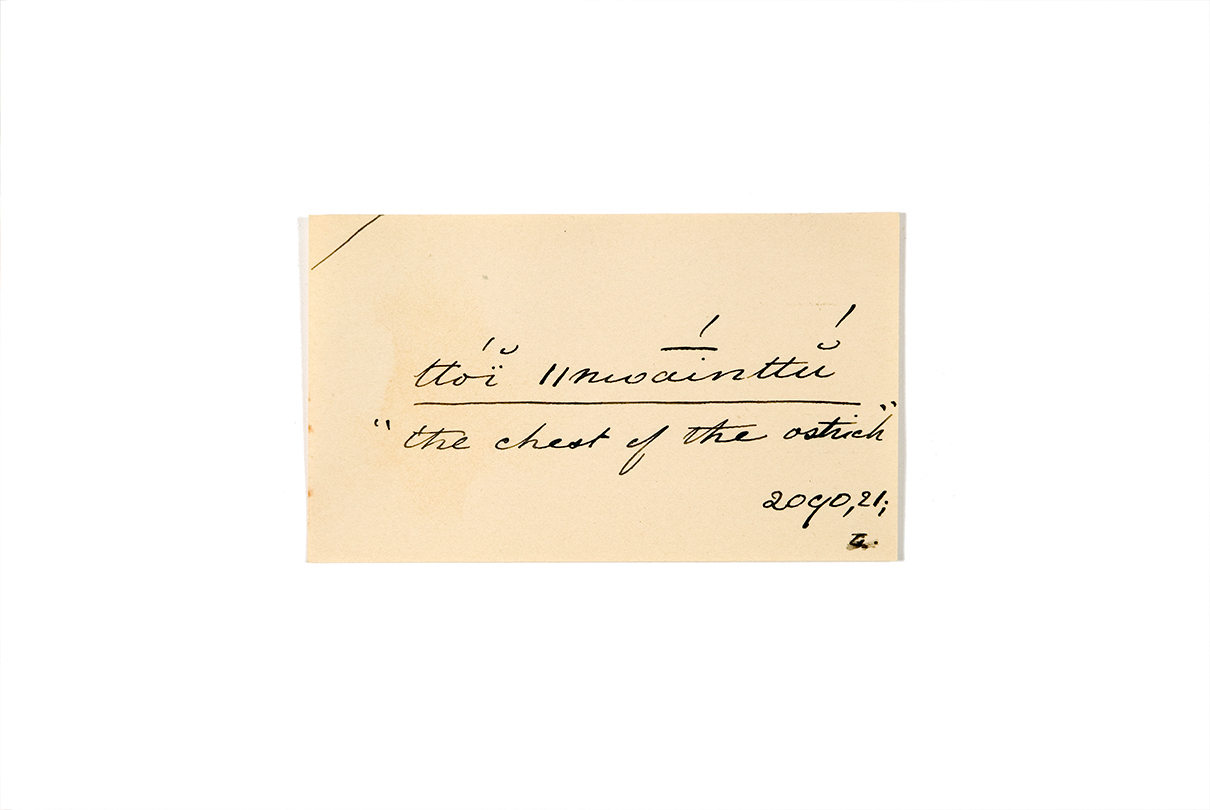 ttóï̆ ǁnwa̅́inttŭ́
"the chest of the ostrich"
2090,21;